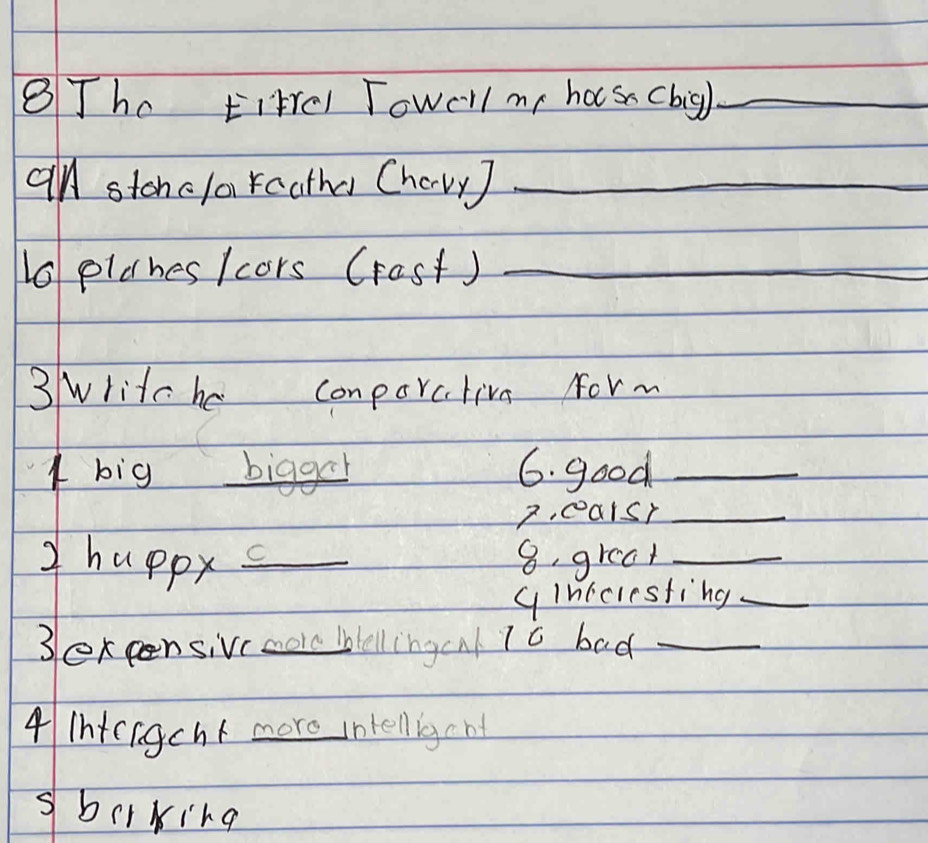 8 The Eiffel Tower/my house (big). ______
9 A stone/a Feather (heavy) ______
10 planes/cars (Fast) ______
3 Write he conparative Form
1 big bigger 6. good ______
7. earsy ______
2 huppy c ______ 8. great ______
9 interesting ______
3 expensive more intellingent 10 bad ______
4 intergent more intelligent
5